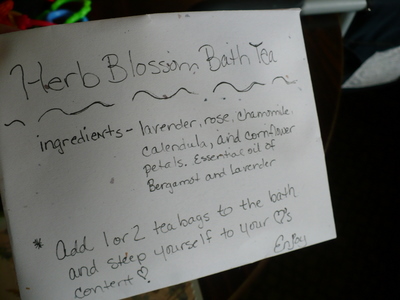 Herb Blossom Bath Tea
ingredients - lavender, rose, chamomile
calendula, and cornflower
petals. Essential oil of
Bergamot and Lavender
* Add 1 or 2 tea bags to the bath
and steep yourself to your ♡'s
content ♡
Enjoy